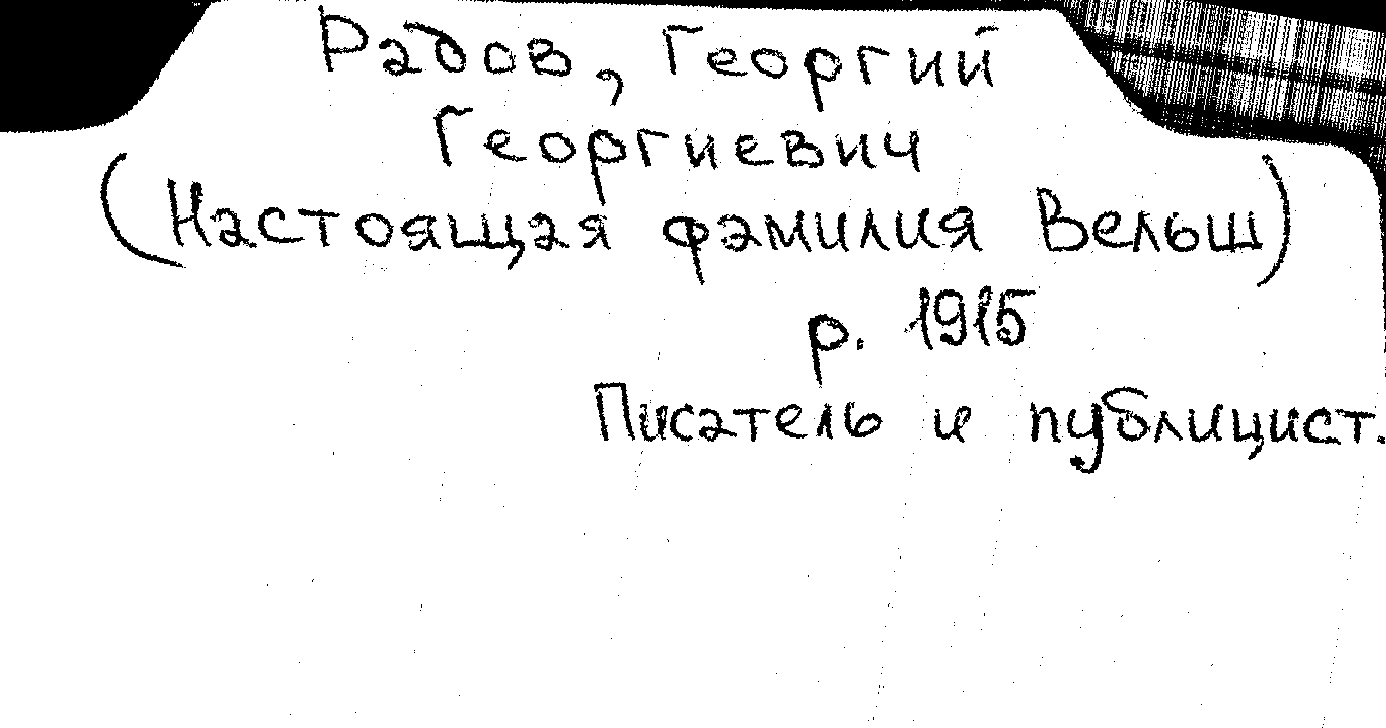 Радов, Георгий
Георгиевич
(Настоящая фамилия Вельш)
р. 1915
Писатель и публицист.